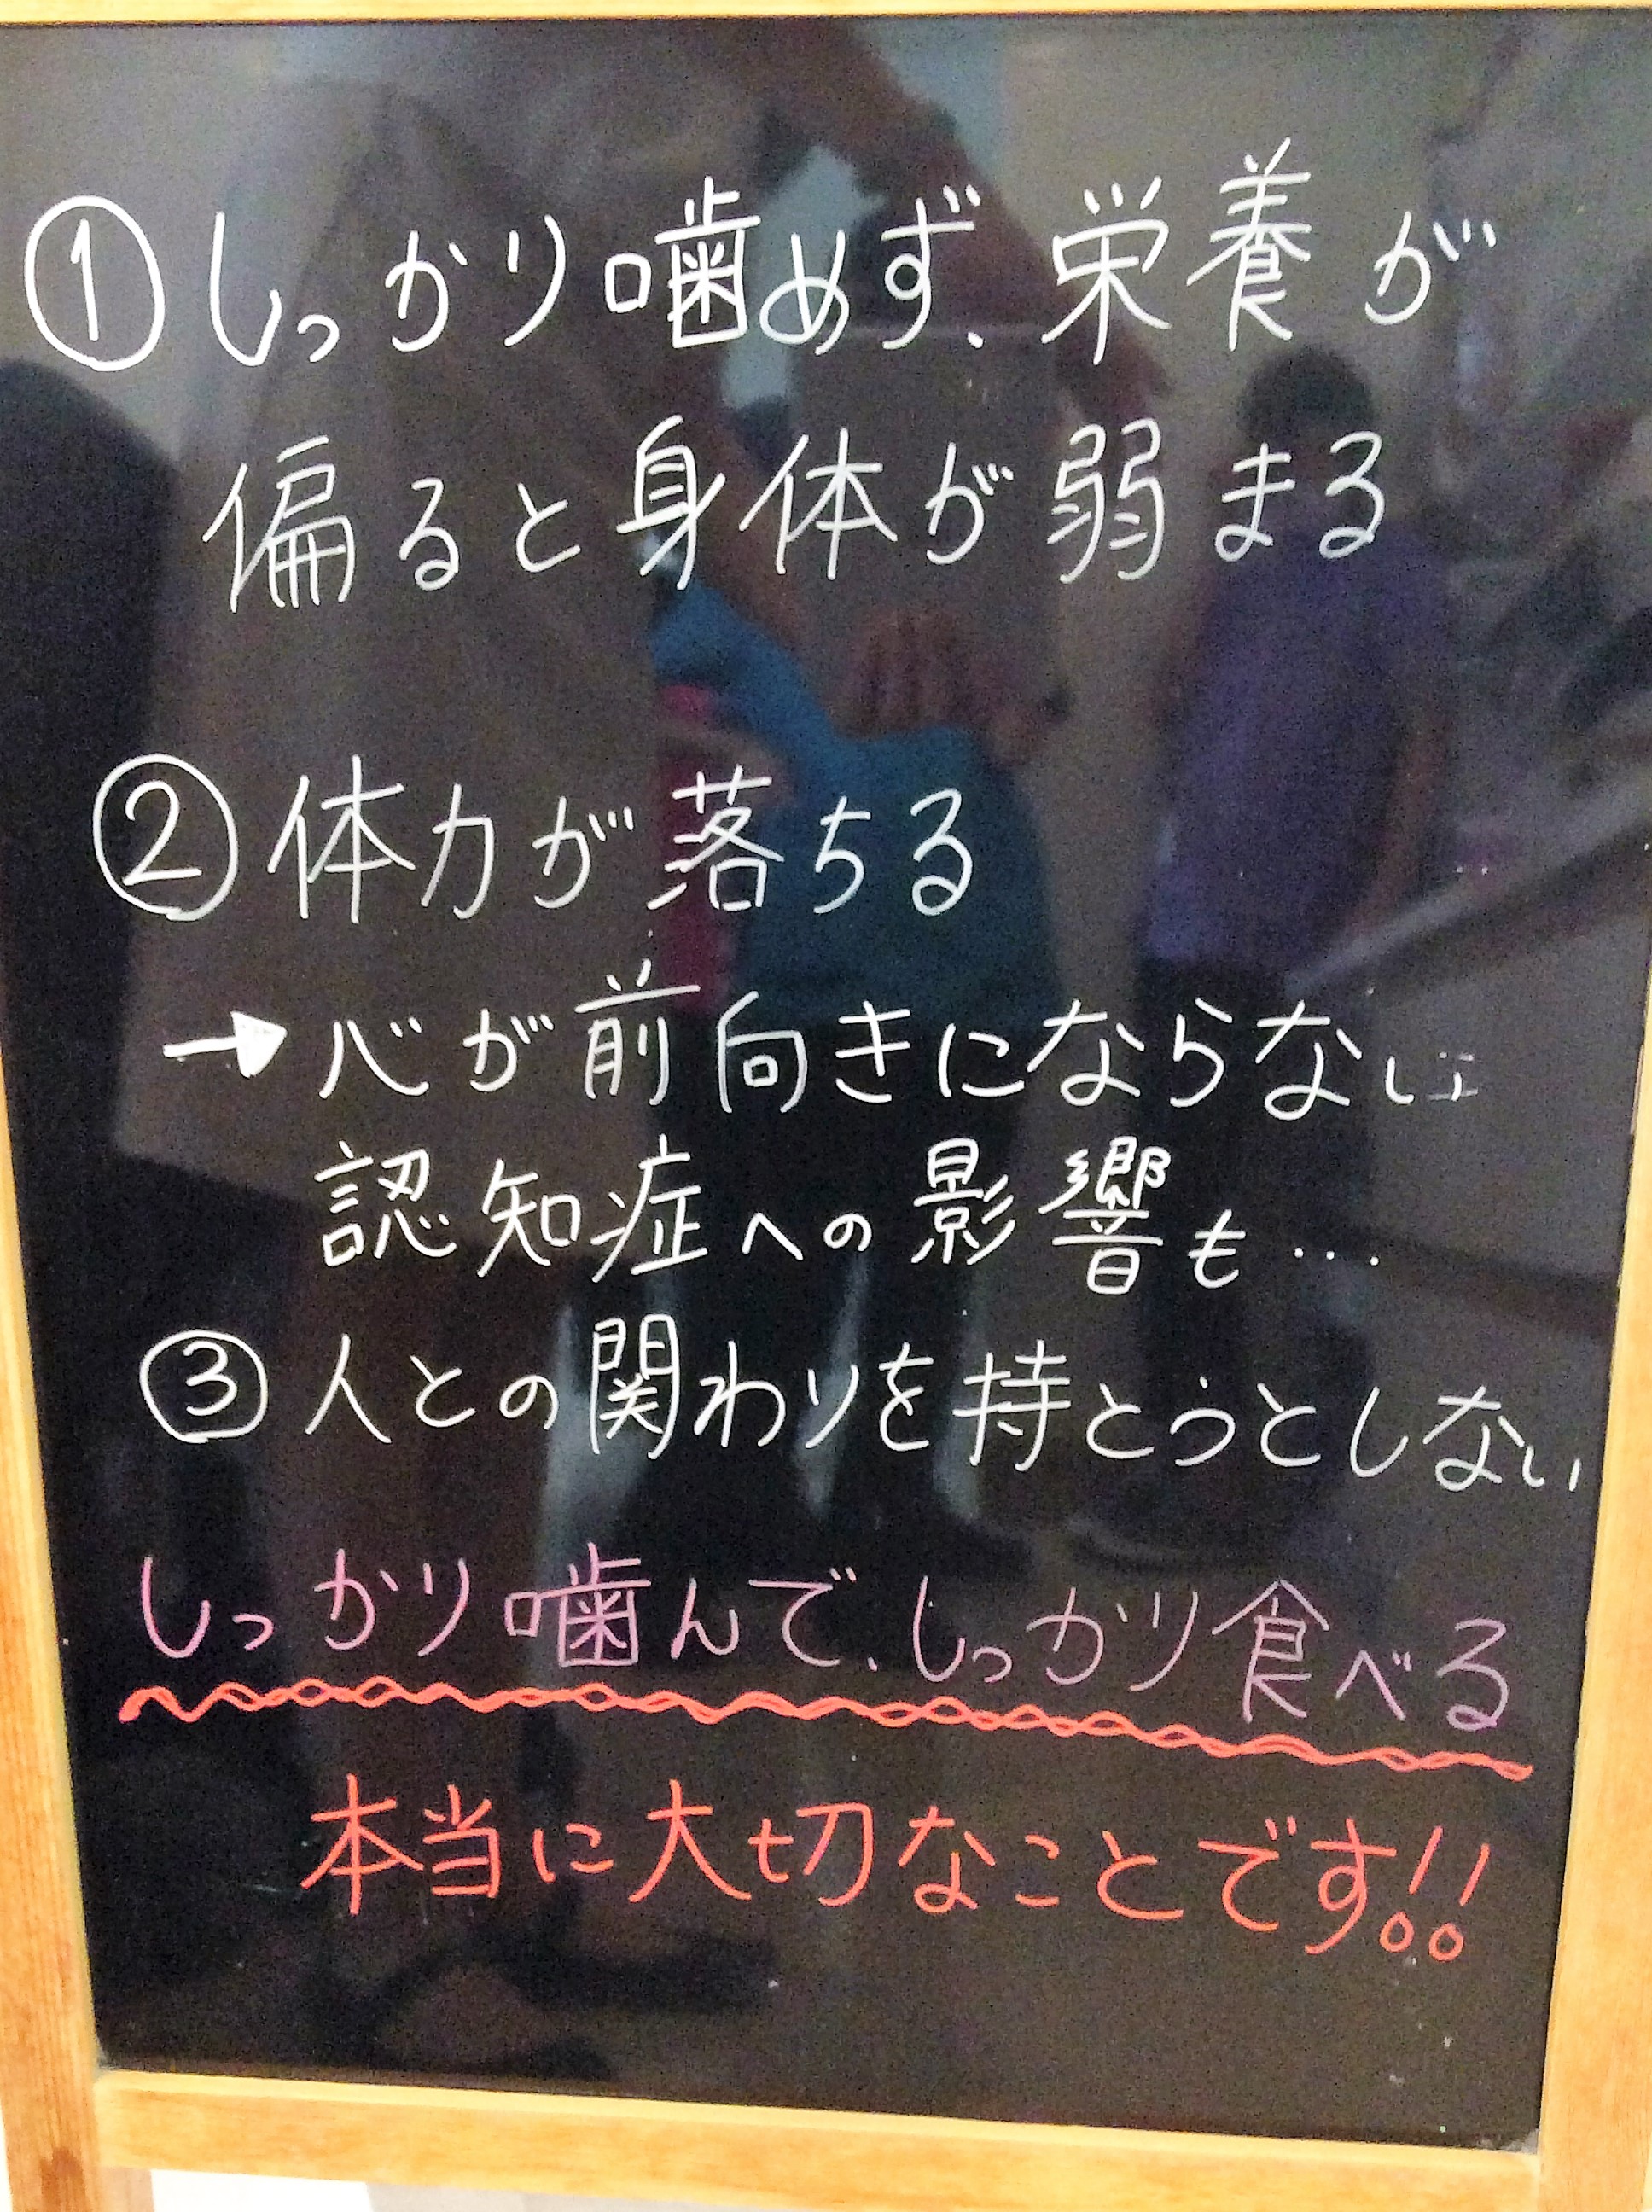 ①しっかり噛めず、栄養が
偏ると身体が弱まる
②体力が落ちる
→心が前向きにならない
認知症への影響も…
③人との関わりを持とうとしない
しっかり噛んで、しっかり食べる
本当に大切なことです!!